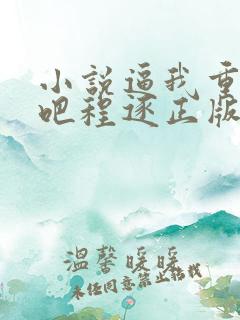 小説逼我重
吧程逐正版
溫馨暖暖
未经同意禁止转载